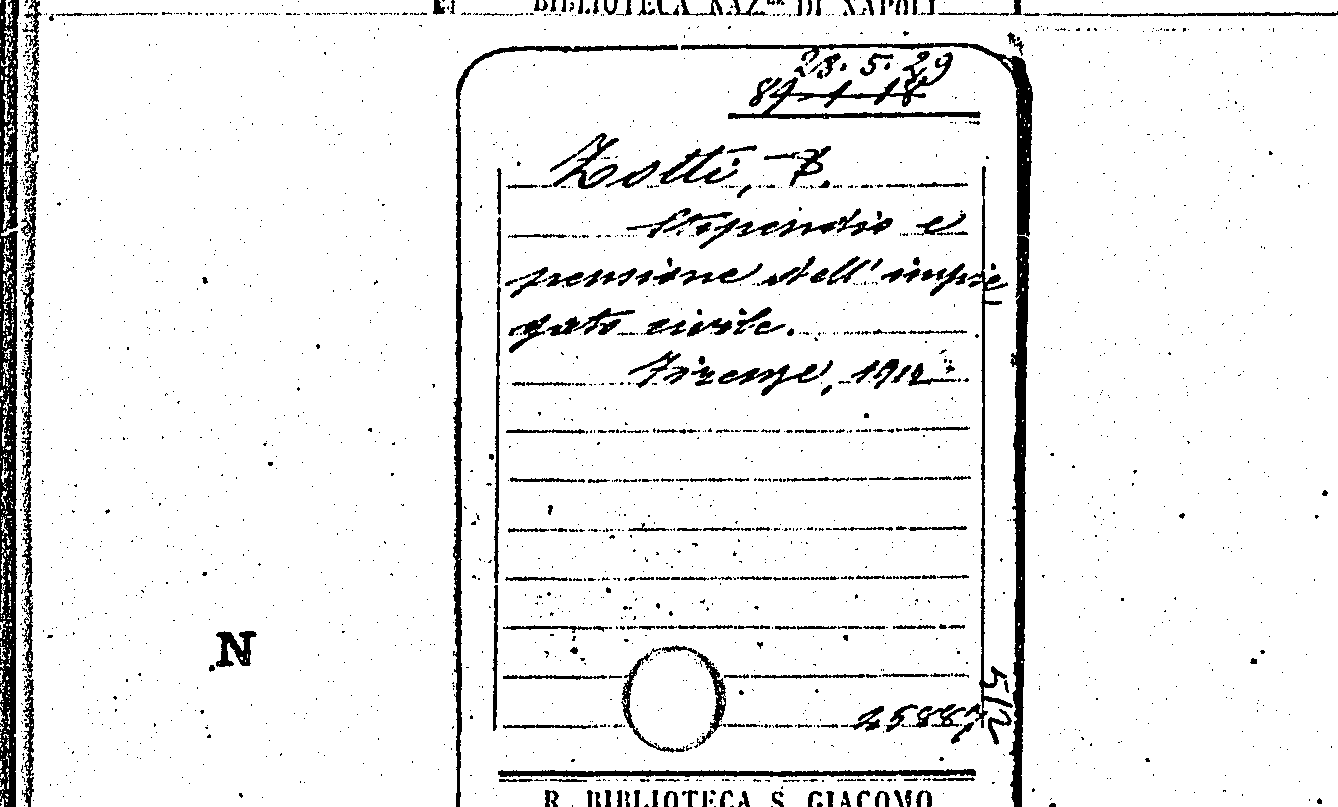 BIBLIOTECA NAZ.le DI NAPOLI
23. 5. 29
84-1-18
Zotti, B.
Stipendio e
pensione dell' impie
gato civile.
Firenze, 1912
N
25887
5/2
R. BIBLIOTECA S. GIACOMO